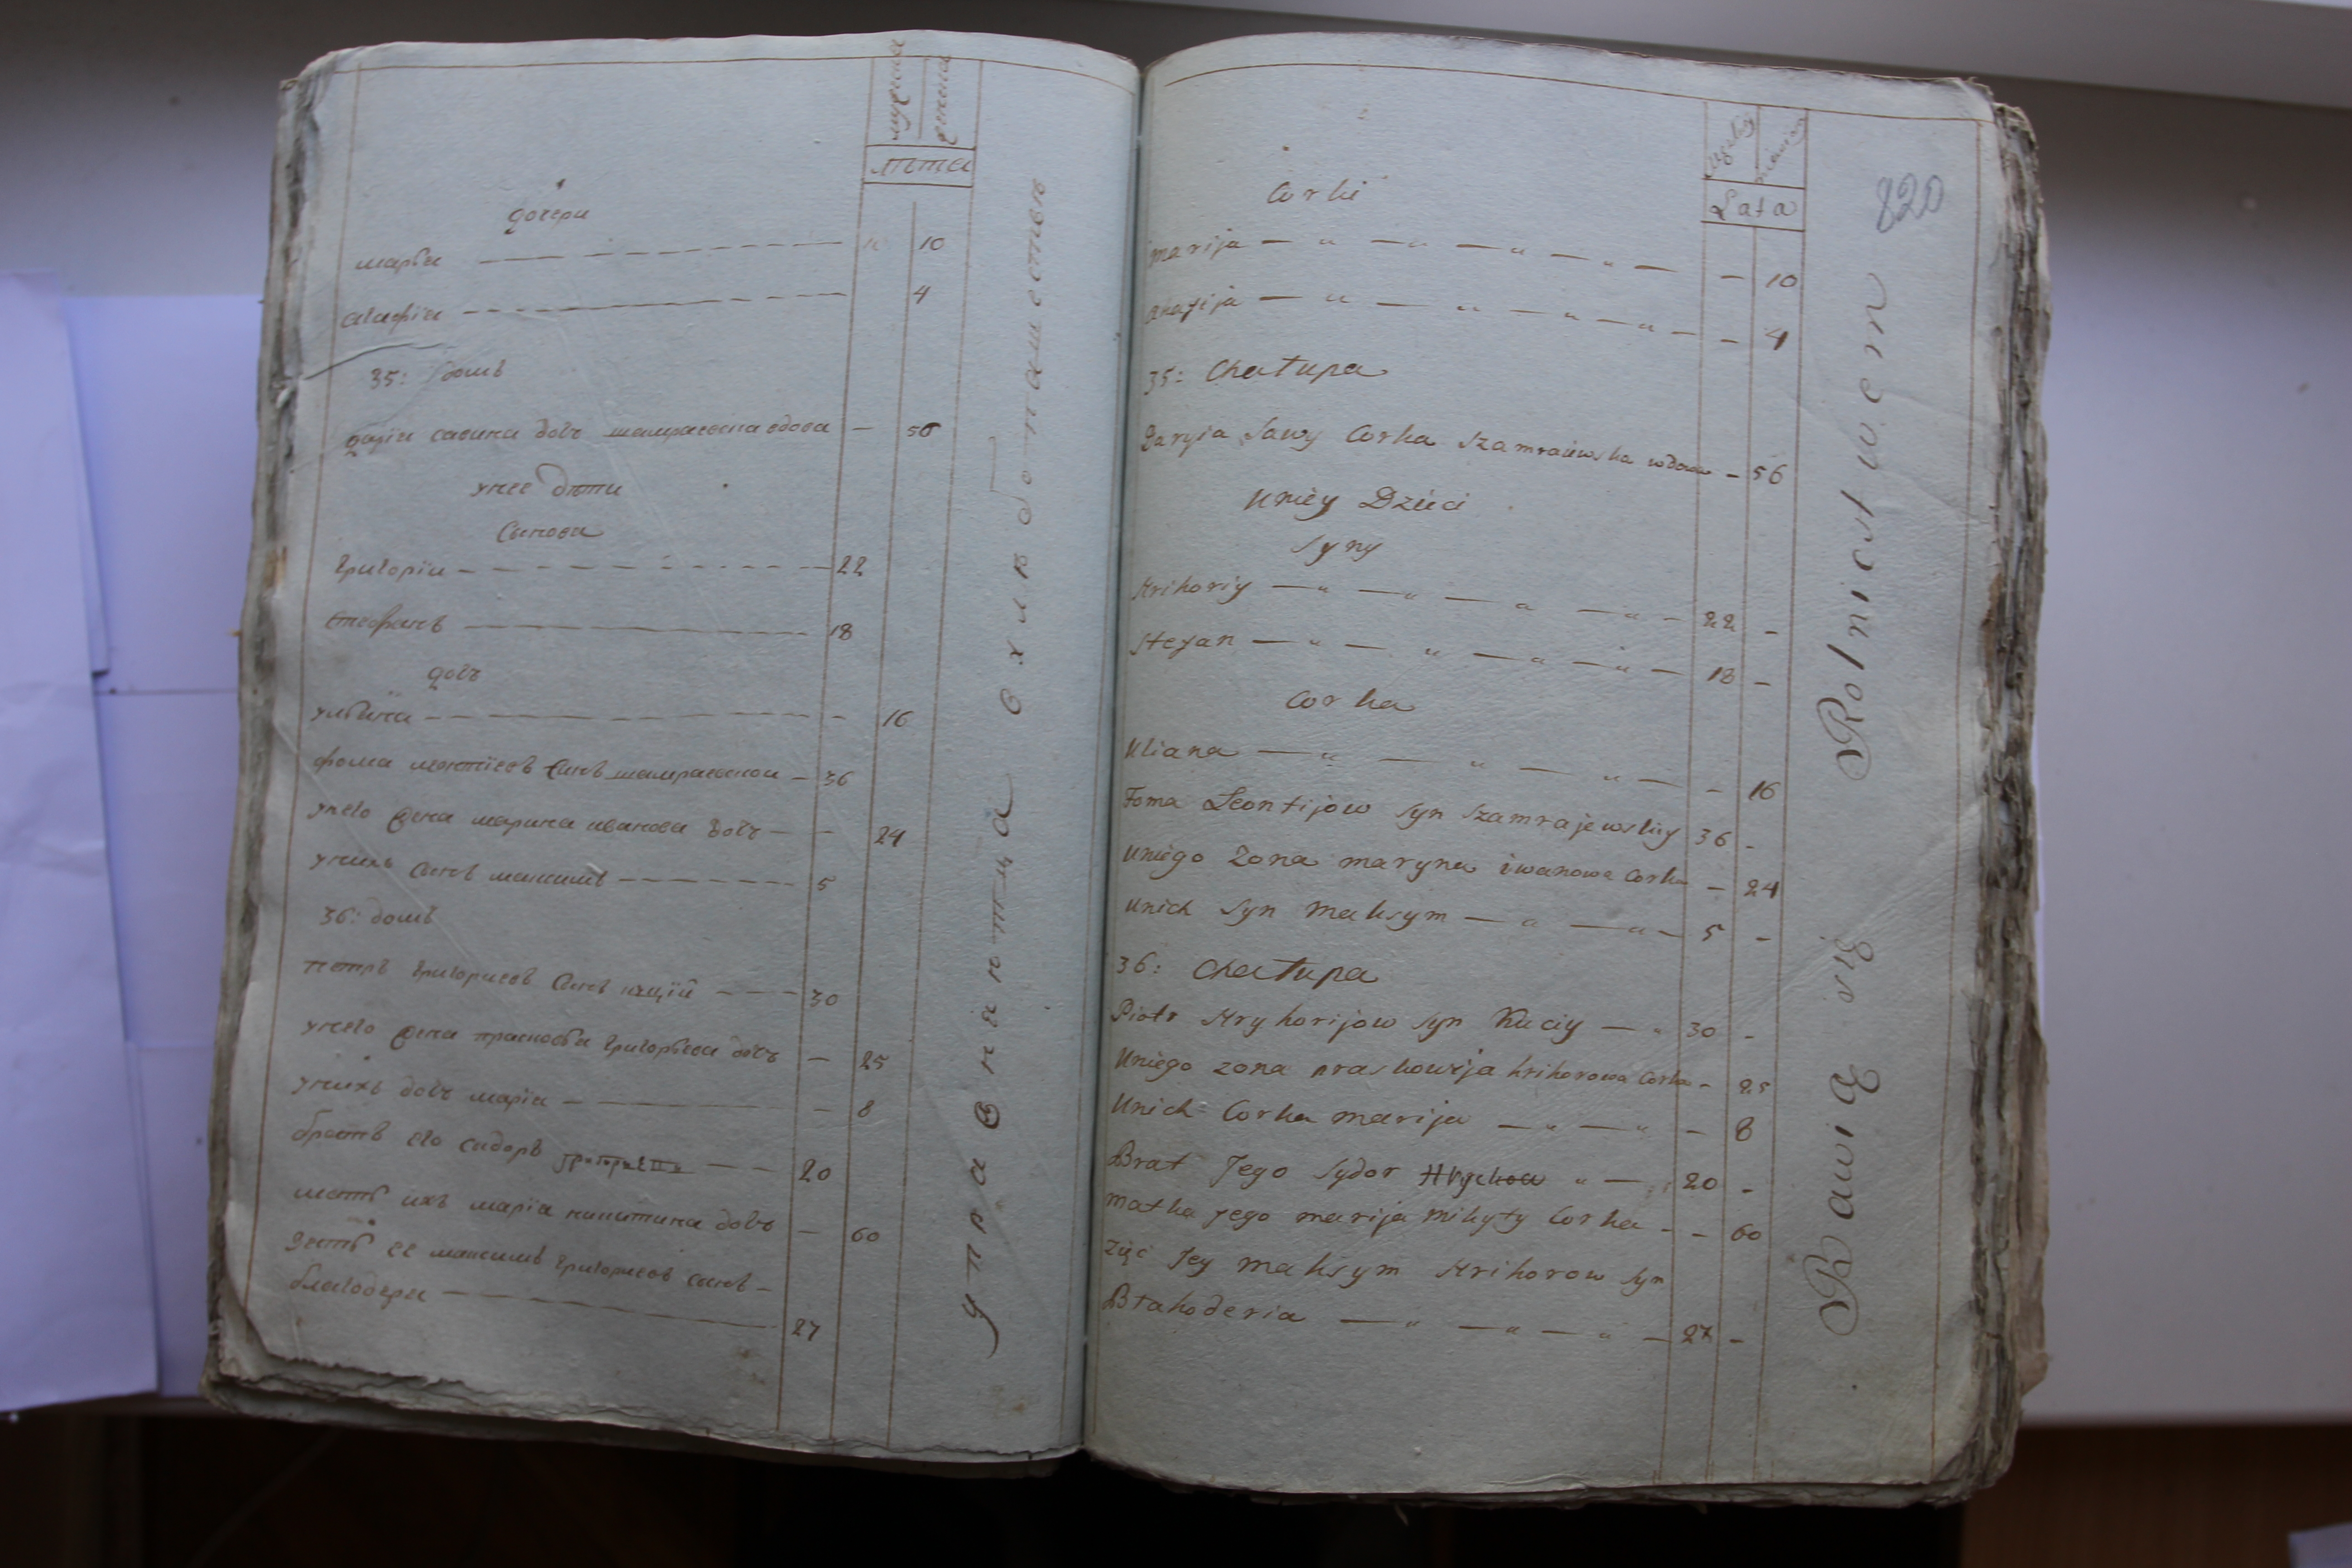 мужска
женска
лѣта
дочери
марья 10
агафiя 4
35: домъ
дарiя савина дочъ шамраевска вдова — 56
унее дѣти
Синови
григорiи 22
стефанъ 18
дочъ
ульяна 16
фома леонтiевъ Синъ шамраевски — 36
унего жена марина иванова дочъ — 24
унихъ Синъ максимъ 5
36: домъ
петръ григориевъ Синъ куцiй 30
унего жена прасковья григорьева дочъ — 25
унихъ дочъ марiя — 8
братъ его сидоръ 20
мать ихъ марiя никитина дочъ — 60
зять ее максимъ григориевъ синъ —
благодери 27
упражняются в хлѣбопашествѣ
820
Lata
Corki
marija — 10
ahafija — 4
35: Chatupa
Daryia Sawy Corka Szamraiewska wdowa — 56
Uniey Dzieci
Syny
Hrihoriy 22 —
Stefan 18 —
Corka
Uliana — 16
Foma Leontijow Syn Szamrajewskiy 36 —
Uniego Zona maryna iwanowa Corka — 24
Unich Syn Maksym 5 —
36: Chatupa
Piotr Hryhorijow Syn Kuciy 30 —
Uniego zona praskowija hrihorowa Corka — 25
Unich Corka marija — 8
Brat Jego Sydor Hryhow 20 —
Matka Jego marija Mikyty Corka — 60
Zięć Jey Maksym Hrihorow Syn
Btahoderia 27 —
Bawią się Rolnictwem